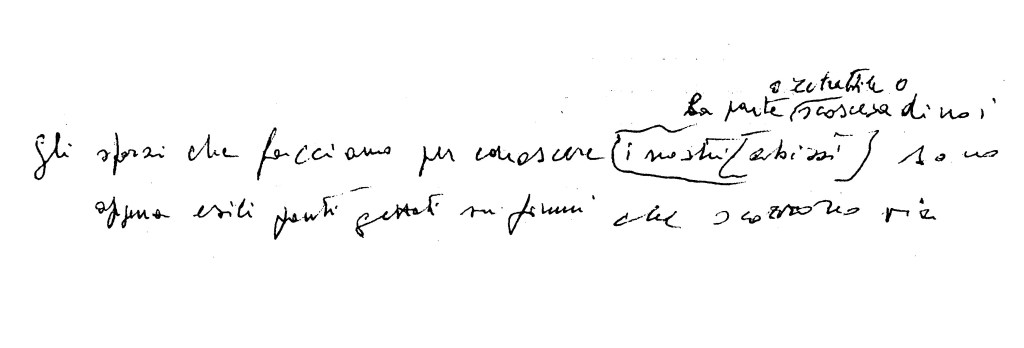 la parte scoscesa di noi
Gli sforzi che facciamo per conoscere (i nostri (abissi) sono
appena esili ponti gettati su fiumi che scorrono via